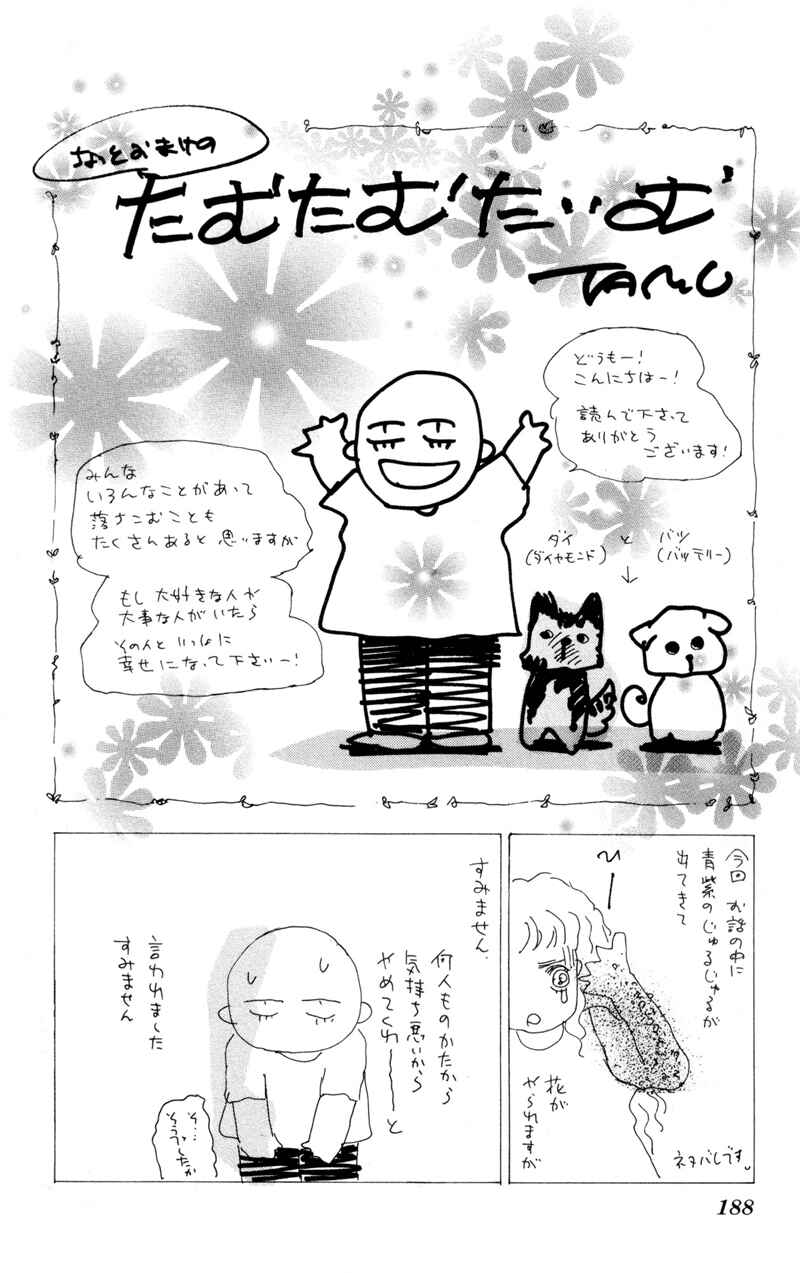 なっとおまけの
たむたむたいむ
TAMU
どうもー!
こんにちはー!
読んで下さって
ありがとう
ございます!
みんな
いろんなことがあって
落ちこむことも
たくさんあると思いますが
もし大好きな人が
大事な人がいたら
その人といっしょに
幸せになって下さいー!
ダイ
(ダイヤモンド)
と
バツ
(バッテリー)
今回お話の中に
青紫のじゅるじゅるが
出てきて
ひー
花が
やられますが
ネタバレです。
すみません。
何人ものかたから
気持ち悪いから
やめてくれーーーと
言われました
すみません
そ…
そうでしたか
188